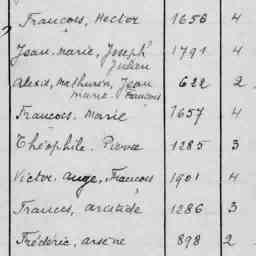 François, Hector 1656 4
Jean-Marie, Joseph 1791 4
Julien
Alexis, Mathurin, Jean 622 2
Marie François
François-Marie 1657 4
Théophile-Pierre 1285 3
Victor-Ange, François 1901 4
Frances, Aristide 1286 3
Frédéric, Arsène 898 2